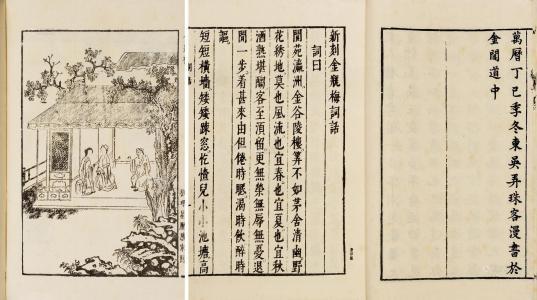 萬曆丁巳季冬東吳弄珠客漫書於
金閶道中
新刻金瓶梅詞話
詞曰
閬苑瀛洲金谷陵樓算不如茅舍清幽野
花綉地莫也風流也宜春也宜夏也宜秋
酒熟堪客至須留更無榮無辱無憂退
閒一步着甚來由但倦時眠渴時飲醉時
謳
短短橫墻矮矮踈窓忔憎兒小小池塘高